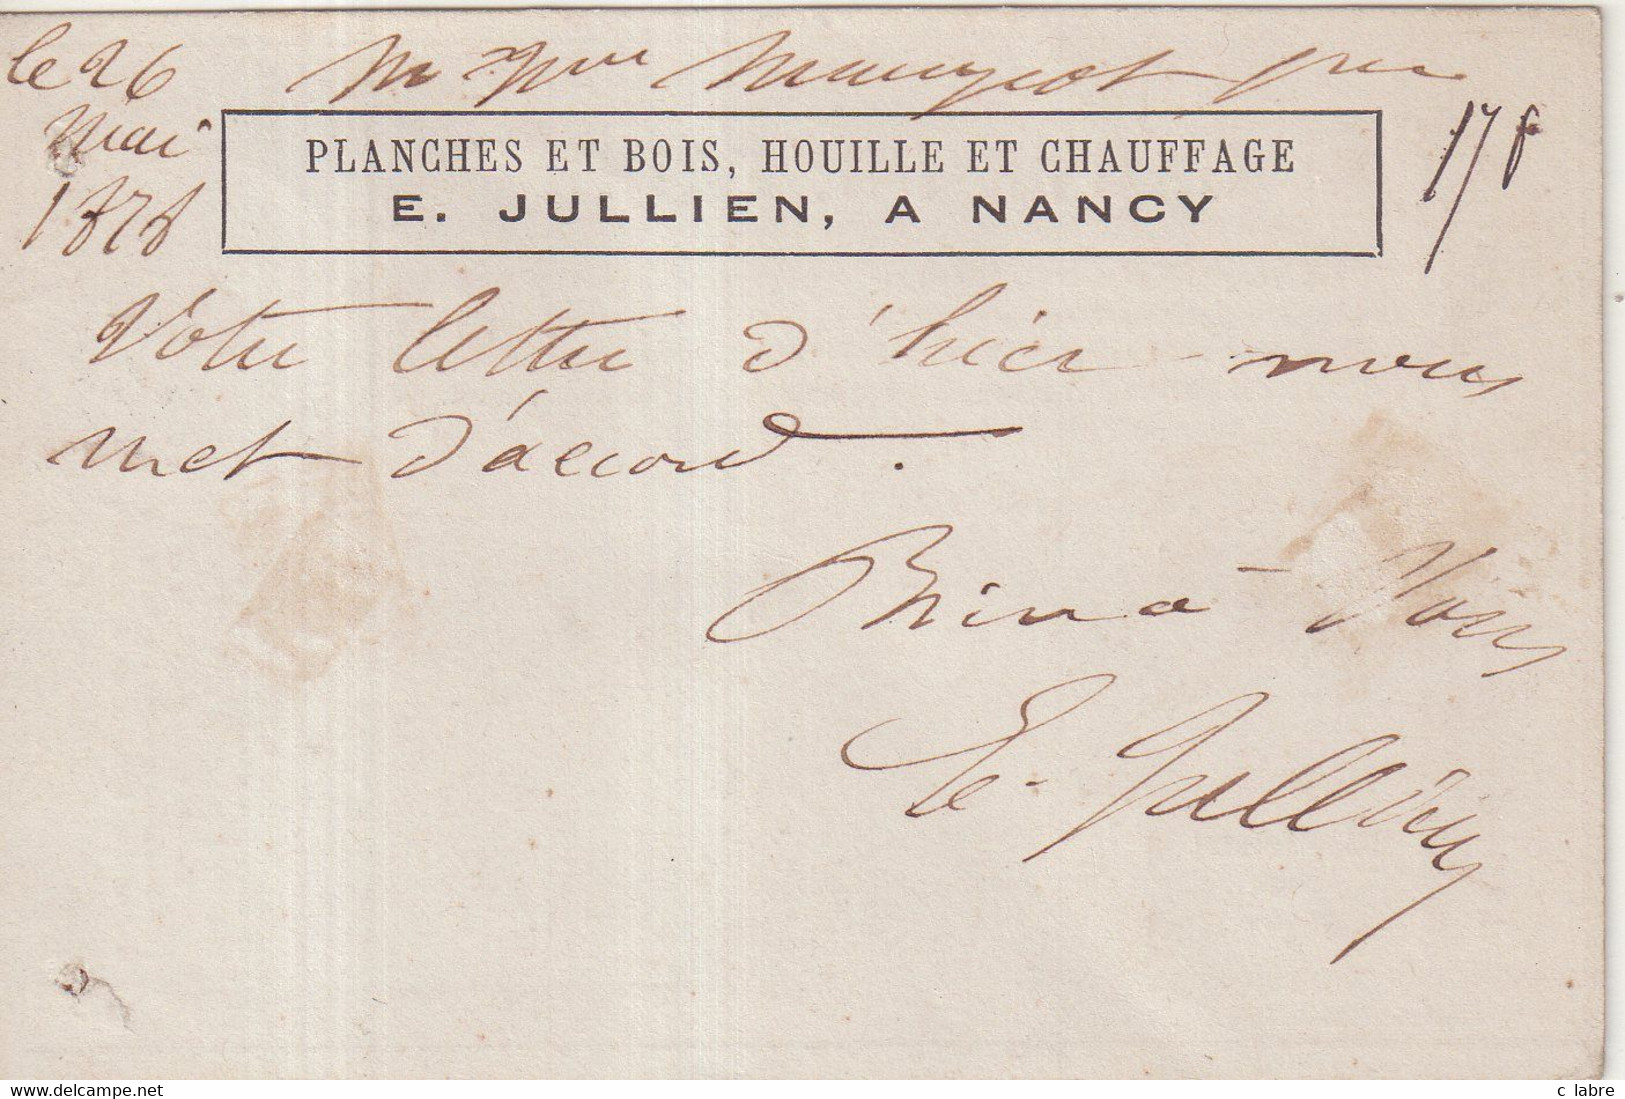 le 26 M
mai
1878
PLANCHES ET BOIS, HOUILLE ET CHAUFFAGE
E. JULLIEN, A NANCY
Votre lettre d'hier nous
met d'accord.
Bien à Vous
E. Jullien
delcampe.net
c_labre